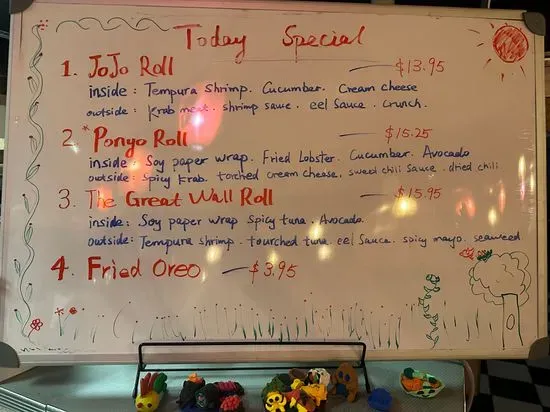 Today Special
1. JoJo Roll — $13.95
inside: Tempura Shrimp. Cucumber. Cream cheese
outside: Krab meat. shrimp sauce. eel Sauce. crunch.
2. *Ponyo Roll — $15.25
inside: Soy paper wrap. Fried Lobster. Cucumber. Avocado
outside: Spicy Krab. torched cream cheese. sweet chili Sauce. dried chili
3. The Great Wall Roll — $15.95
inside: Soy paper wrap Spicy tuna. Avocado.
outside: Tempura shrimp. tourched tuna. eel Sauce. spicy mayo. seaweed
4. Fried Oreo — $3.95